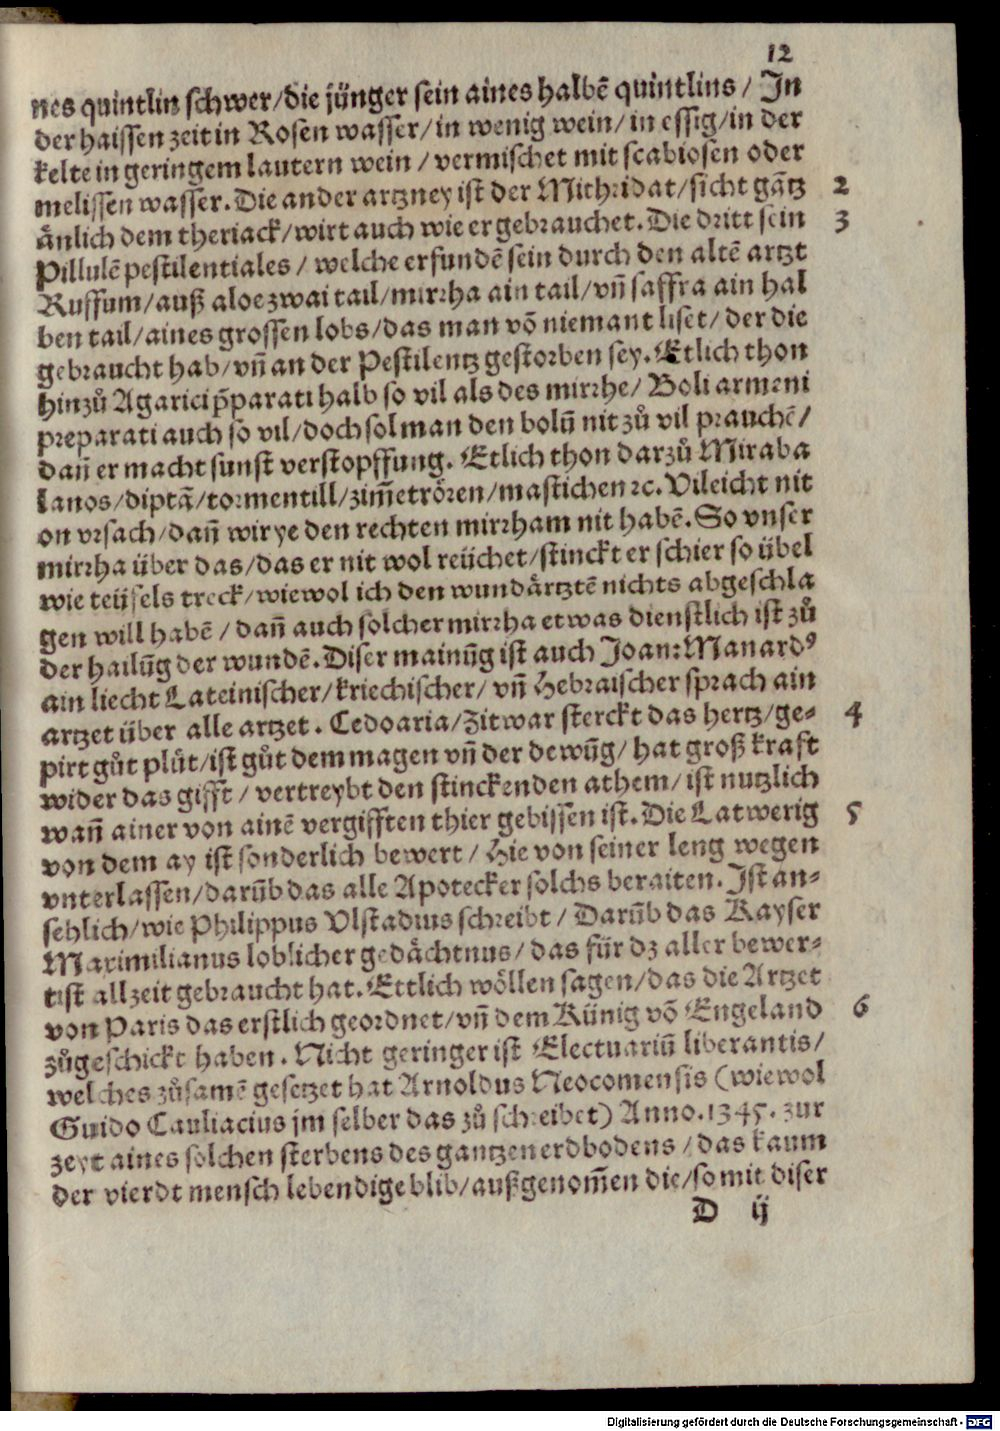 12
nes quintlin schwer/die jünger sein aines halbē quintlins/ In
der haissen zeit in Rosen wasser/in wenig wein/in essig/in der
kelte in geringem lautern wein/vermischet mit scabiosen oder
melissen wasser. Die ander artzney ist der Mithridat/sicht gātz 2
änlich dem theriack/wirt auch wie er gebrauchet. Die dritt sein 3
Pillulē pestilentiales/welche erfundē sein durch den altē artzt
Ruffum/auß aloe zwai tail/mirrha ain tail/vn̄ saffra ain hal
ben tail/aines grossen lobs/das man vō niemant liset/der die
gebraucht hab/vn̄ an der Pestilentz gestorben sey. Etlich thon
hinzů Agarici p̄parati halb so vil als des mirrhe/Boli armeni
preparati auch so vil/doch sol man den bolū nit zů vil prauchē/
dan̄ er macht sunst verstopffung. Etlich thon darzů Miraba
lanos/diptā/tormentill/zim̄etrören/mastichen ꝛc. Vileicht nit
on vrsach/dan̄ wir ye den rechten mirrham nit habē. So vnser
mirrha über das/das er nit wol reüchet/stinckt er schier so übel
wie teüfels treck/wiewol ich den wundärtztē nichts abgeschla
gen will habē/dan̄ auch solcher mirrha etwas dienstlich ist zů
der hailūg der wundē. Diser mainūg ist auch Joan: Manardꝰ
ain liecht Lateinischer/kriechischer/vn̄ Hebraischer sprach ain
artzet über alle artzet. Cedoaria/Zitwar sterckt das hertz/ge- 4
pirt gůt plůt/ist gůt dem magen vn̄ der dewūg/hat groß kraft
wider das gifft/vertreybt den stinckenden athem/ist nutzlich
wan̄ ainer von ainē vergifften thier gebissen ist. Die Latwerig 5
von dem ay ist sonderlich bewert/Hie von seiner leng wegen
vnterlassen/darūb das alle Apotecker solchs beraiten. Ist an-
sehlich/wie Philippus Vlstadius schreibt/Darūb das Kayser
Maximilianus loblicher gedächtnus/das für dz aller bewer-
tist allzeit gebraucht hat. Ettlich wöllen sagen/das die Artzet
von Paris das erstlich geordnet/vn̄ dem Künig vō Engeland 6
zůgeschickt haben. Nicht geringer ist Electuariū liberantis/
welches zůsamē gesetzet hat Arnoldus Neocomensis (wiewol
Guido Cauliacius jm selber das zů schreibet) Anno. 1345. zur
zeyt aines solchen sterbens des gantzen erdbodens/das kaum
der vierdt mensch lebendig eblib/außgenom̄en die/so mit diser
D ij
Digitalisierung gefördert durch die Deutsche Forschungsgemeinschaft - DFG